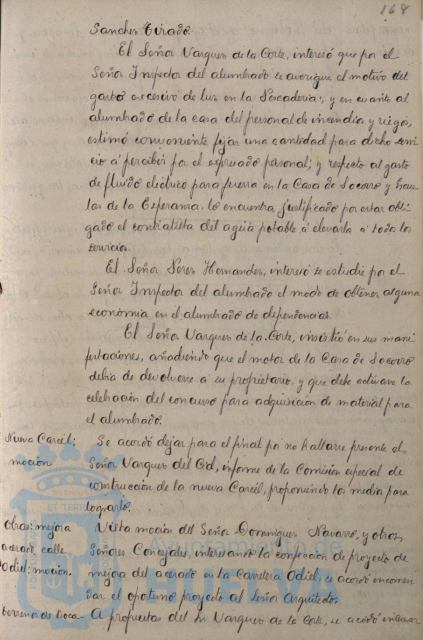 168
Sanchez Tirado.
El Señor Vazquez de la Corte, interesó que por el
Señor Inspector del alumbrado se averigüe el motivo del
gasto excesivo de luz en la Pescadería, y en cuanto al
alumbrado de la casa del personal de incendio y riegos,
estimó conveniente fijar una cantidad para dicho servi
cio a percibir por el expresado personal; y respecto al gasto
de fluido eléctrico para fuerza en la Casa de Socorro y
de la Esperanza, lo encuentra justificado por estar obli
gado el contratista del agua potable a elevarla a todos los
servicios.
El Señor Perez Hernandez, interesó se estudie por el
Señor Inspector del alumbrado el modo de obtener alguna
economía en el alumbrado de dependencias.
El Señor Vazquez de la Corte, insistió en sus mani
festaciones, añadiendo que el motor de la Casa de Socorro
debía de devolverse a su propietario y que debe activarse la
celebración del concurso para adquisición de material para
el alumbrado.
Nueva Carcel; Se acordó dejar para el final por no hallarse presente el
moción Señor Vazquez del Cid, informe de la Comisión especial de
construcción de la nueva Carcel, proponiendo los medios para
lograrlo.
Obras: mejora Vista moción del Señor Dominguez Navarro, y otros
acerado calle Señores Concejales, interesando la confección de proyecto de
Odiel: moción. mejora del acerado en la Carretera Odiel, se acordó encomen
dar el oportuno proyecto al Señor Arquitecto.
A propuesta del Sr. Vazquez de la Corte, se acordó